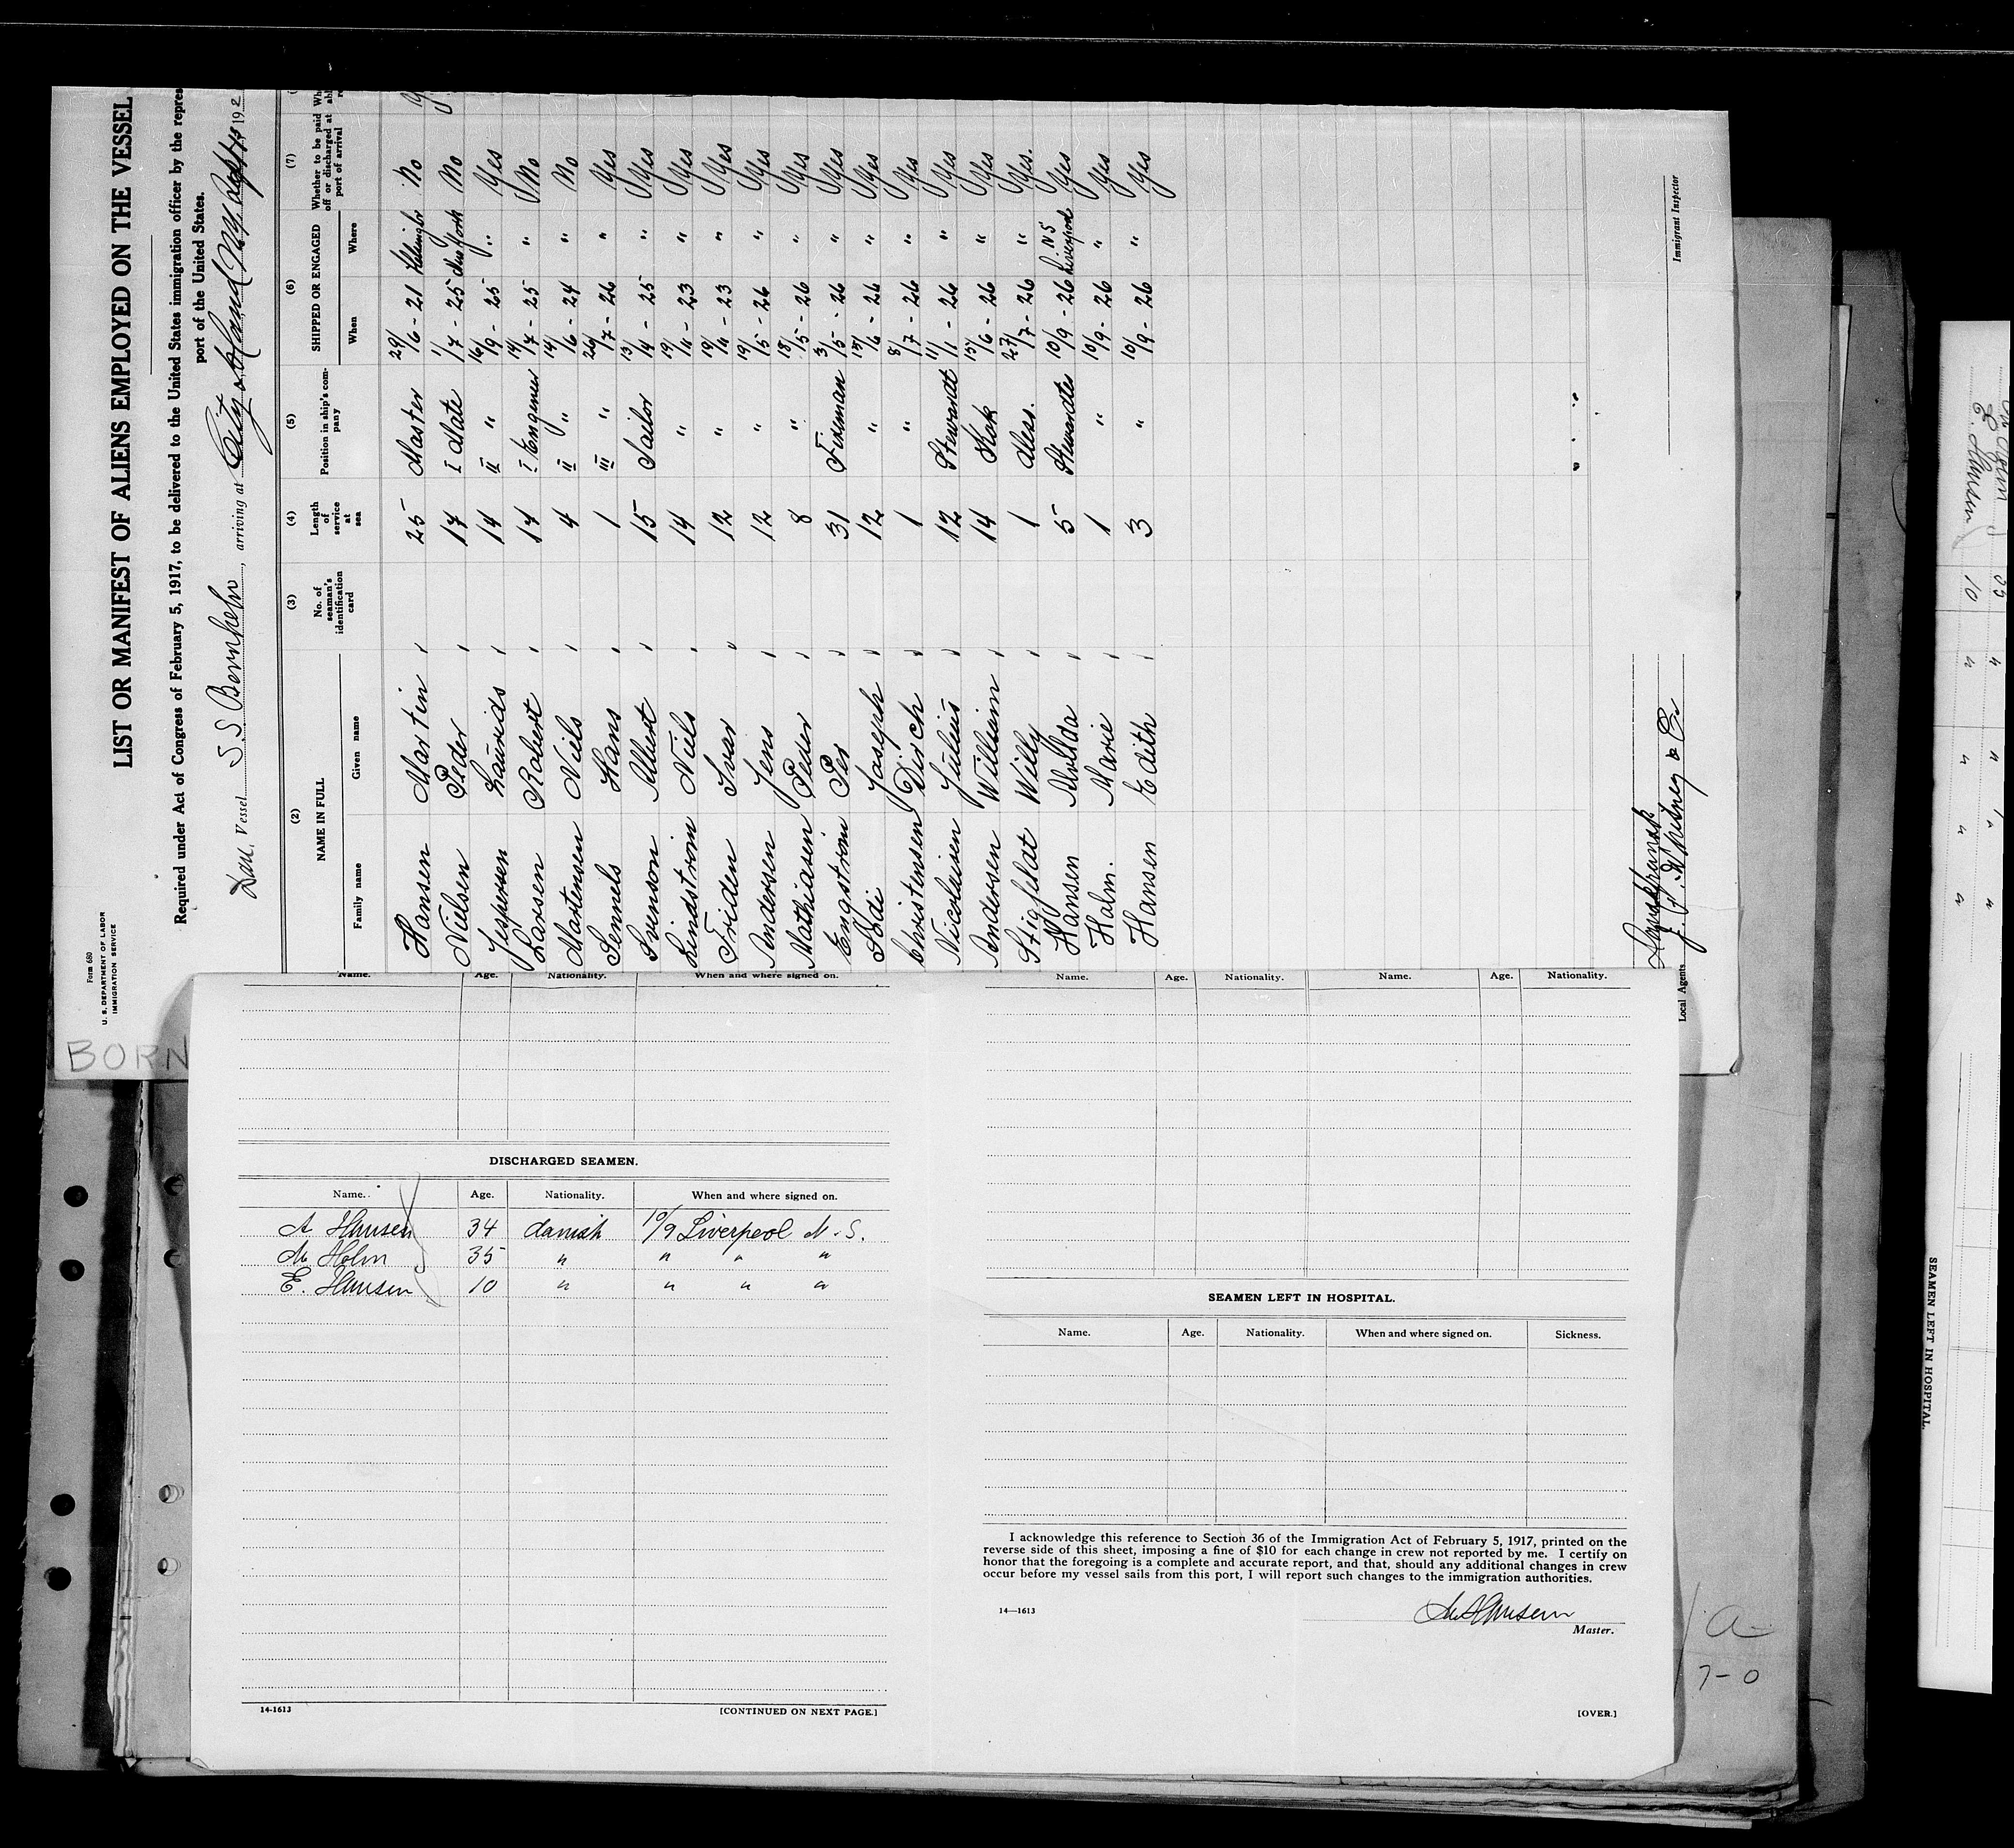 Form 680
U. S. DEPARTMENT OF LABOR
IMMIGRATION SERVICE
LIST OR MANIFEST OF ALIENS EMPLOYED ON THE VESSEL
Required under Act of Congress of February 5, 1917, to be delivered to the United States immigration officer by the repres
port of the United States.
Vessel S S Bornholm, arriving at 192
(2) (3) (4) (5) (6) (7)
NAME IN FULL No. of seaman's identification card Length of service at sea Position in ship's company SHIPPED OR ENGAGED Whether to be paid off or discharged at port of arrival
Family name Given name When Where
Hansen Martin 25 Master 29/6 - 21 No
Nielsen Peder 17 I Mate 1/7 - 25 New York No
Jespersen Laurids 14 II " 16/9 - 25 " Yes
Larsen Robert 17 I Engener 14/7 - 25 " No
Martensen Niels 4 II " 14/6 - 24 " No
Sennels Hans 1 III " 26/7 - 26 " Yes
Svenson Albert 15 Sailor 13/14 - 25 " Yes
Lindström Niels 14 " 19/14 - 23 " Yes
Friden Ivar 12 " 19/14 - 23 " Yes
Andersen Jens 12 " 19/5 - 26 " Yes
Mathiasen Peder 8 " 18/5 - 26 " Yes
Engström Per 31 Fireman 3/5 - 26 " Yes
Joseph 12 " 15/6 - 26 " Yes
Christensen Dirch 1 " 8/7 - 26 " Yes
Nicolaisen Julius 12 Stewardt 11/1 - 26 " Yes
Andersen William 14 Kok 15/6 - 26 " Yes
Willy 1 Mess. 27/7 - 26 " Yes.
Hansen 5 Stewardtes 10/9 - 26 Liverpool N S Yes
Holm. Marie 1 " 10/9 - 26 " Yes
Hansen Edith 3 " 10/9 - 26 " Yes
Local Agents J. F. Whitney & Co
Immigrant Inspector
BORN
Name. Age. Nationality. When and where signed on.
DISCHARGED SEAMEN.
Name. Age. Nationality. When and where signed on.
A Hansen 34 danish 10/9 Liverpool N. S.
M Holm 35 " " " "
E. Hansen 10 " " " "
14-1613 [CONTINUED ON NEXT PAGE.]
Name. Age. Nationality. Name. Age. Nationality.
SEAMEN LEFT IN HOSPITAL.
Name. Age. Nationality. When and where signed on. Sickness.
I acknowledge this reference to Section 36 of the Immigration Act of February 5, 1917, printed on the
reverse side of this sheet, imposing a fine of $10 for each change in crew not reported by me. I certify on
honor that the foregoing is a complete and accurate report, and that, should any additional changes in crew
occur before my vessel sails from this port, I will report such changes to the immigration authorities.
14—1613
M Hansen
Master.
[OVER.]
a
7-0
E. Hansen 10 "
SEAMEN LEFT IN HOSPITAL